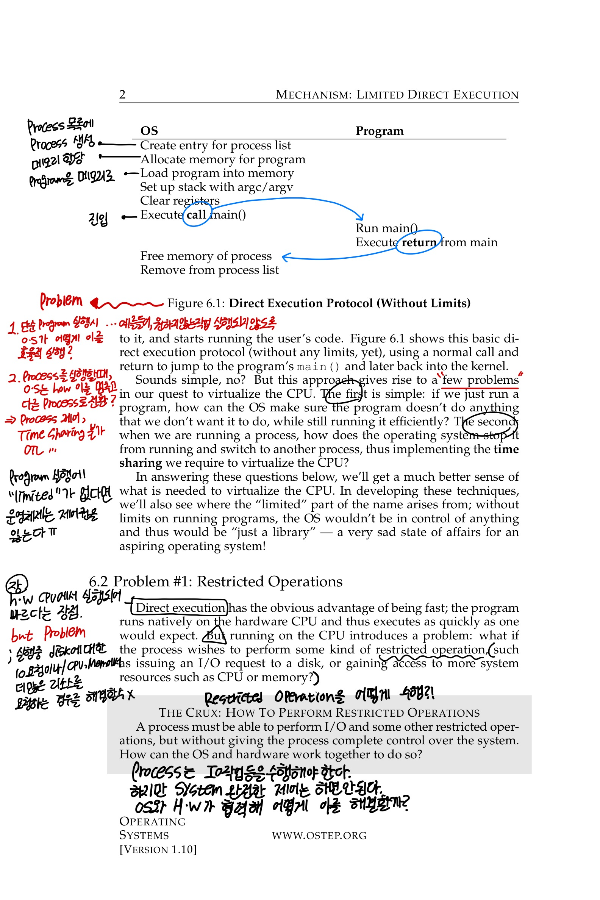 2 MECHANISM: LIMITED DIRECT EXECUTION
OS Program
Create entry for process list
Allocate memory for program
Load program into memory
Set up stack with argc/argv
Clear registers
Execute call main()
Run main()
Execute return from main
Free memory of process
Remove from process list
Process 목록에
Process 생성
메모리 할당
Program을 메모리로
진입
Problem
Figure 6.1: Direct Execution Protocol (Without Limits)
1. 단순 Program 실행시 ... 예를들어, 원하지않는작업 실행되지않도록
O·S가 어떻게 이를
효율적 실행?
2. Process를 실행할때,
O·S는 how 이를 멈추고
다른 Process로 전환?
⇒ Process 제어,
Time Sharing 불가
OTL ...
to it, and starts running the user's code. Figure 6.1 shows this basic di-
rect execution protocol (without any limits, yet), using a normal call and
return to jump to the program's main() and later back into the kernel.
Sounds simple, no? But this approach gives rise to a "few problems"
in our quest to virtualize the CPU. The first is simple: if we just run a
program, how can the OS make sure the program doesn't do anything
that we don't want it to do, while still running it efficiently? The second:
when we are running a process, how does the operating system stop it
from running and switch to another process, thus implementing the time
sharing we require to virtualize the CPU?
Program 실행에
"limited"가 없다면
운영체제는 제어권을
잃는다 ㅠ
In answering these questions below, we'll get a much better sense of
what is needed to virtualize the CPU. In developing these techniques,
we'll also see where the "limited" part of the name arises from; without
limits on running programs, the OS wouldn't be in control of anything
and thus would be "just a library" — a very sad state of affairs for an
aspiring operating system!
6.2 Problem #1: Restricted Operations
장
h·w CPU에서 실행되어
빠르다는 장점.
but Problem
; 실행중 disk에대한
IO요청이나 CPU, Memory
더많은 리소스를
요청하는 경우를 해결할수 X
Direct execution has the obvious advantage of being fast; the program
runs natively on the hardware CPU and thus executes as quickly as one
would expect. But running on the CPU introduces a problem: what if
the process wishes to perform some kind of restricted operation, (such
as issuing an I/O request to a disk, or gaining access to more system
resources such as CPU or memory?)
Restricted Operation을 어떻게 수행?!
THE CRUX: HOW TO PERFORM RESTRICTED OPERATIONS
A process must be able to perform I/O and some other restricted oper-
ations, but without giving the process complete control over the system.
How can the OS and hardware work together to do so?
Process는 IO작업등을수행해야 한다.
하지만 System 완전한 제어는 하면안된다.
OS와 H·W가 협력해 어떻게 이를 해결할까?
OPERATING
SYSTEMS WWW.OSTEP.ORG
[VERSION 1.10]